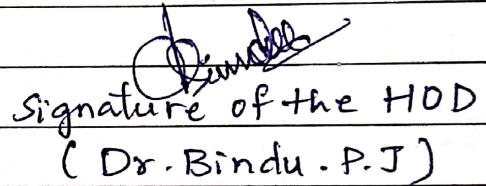 Bindu
Signature of the HOD
( Dr. Bindu . P. J )